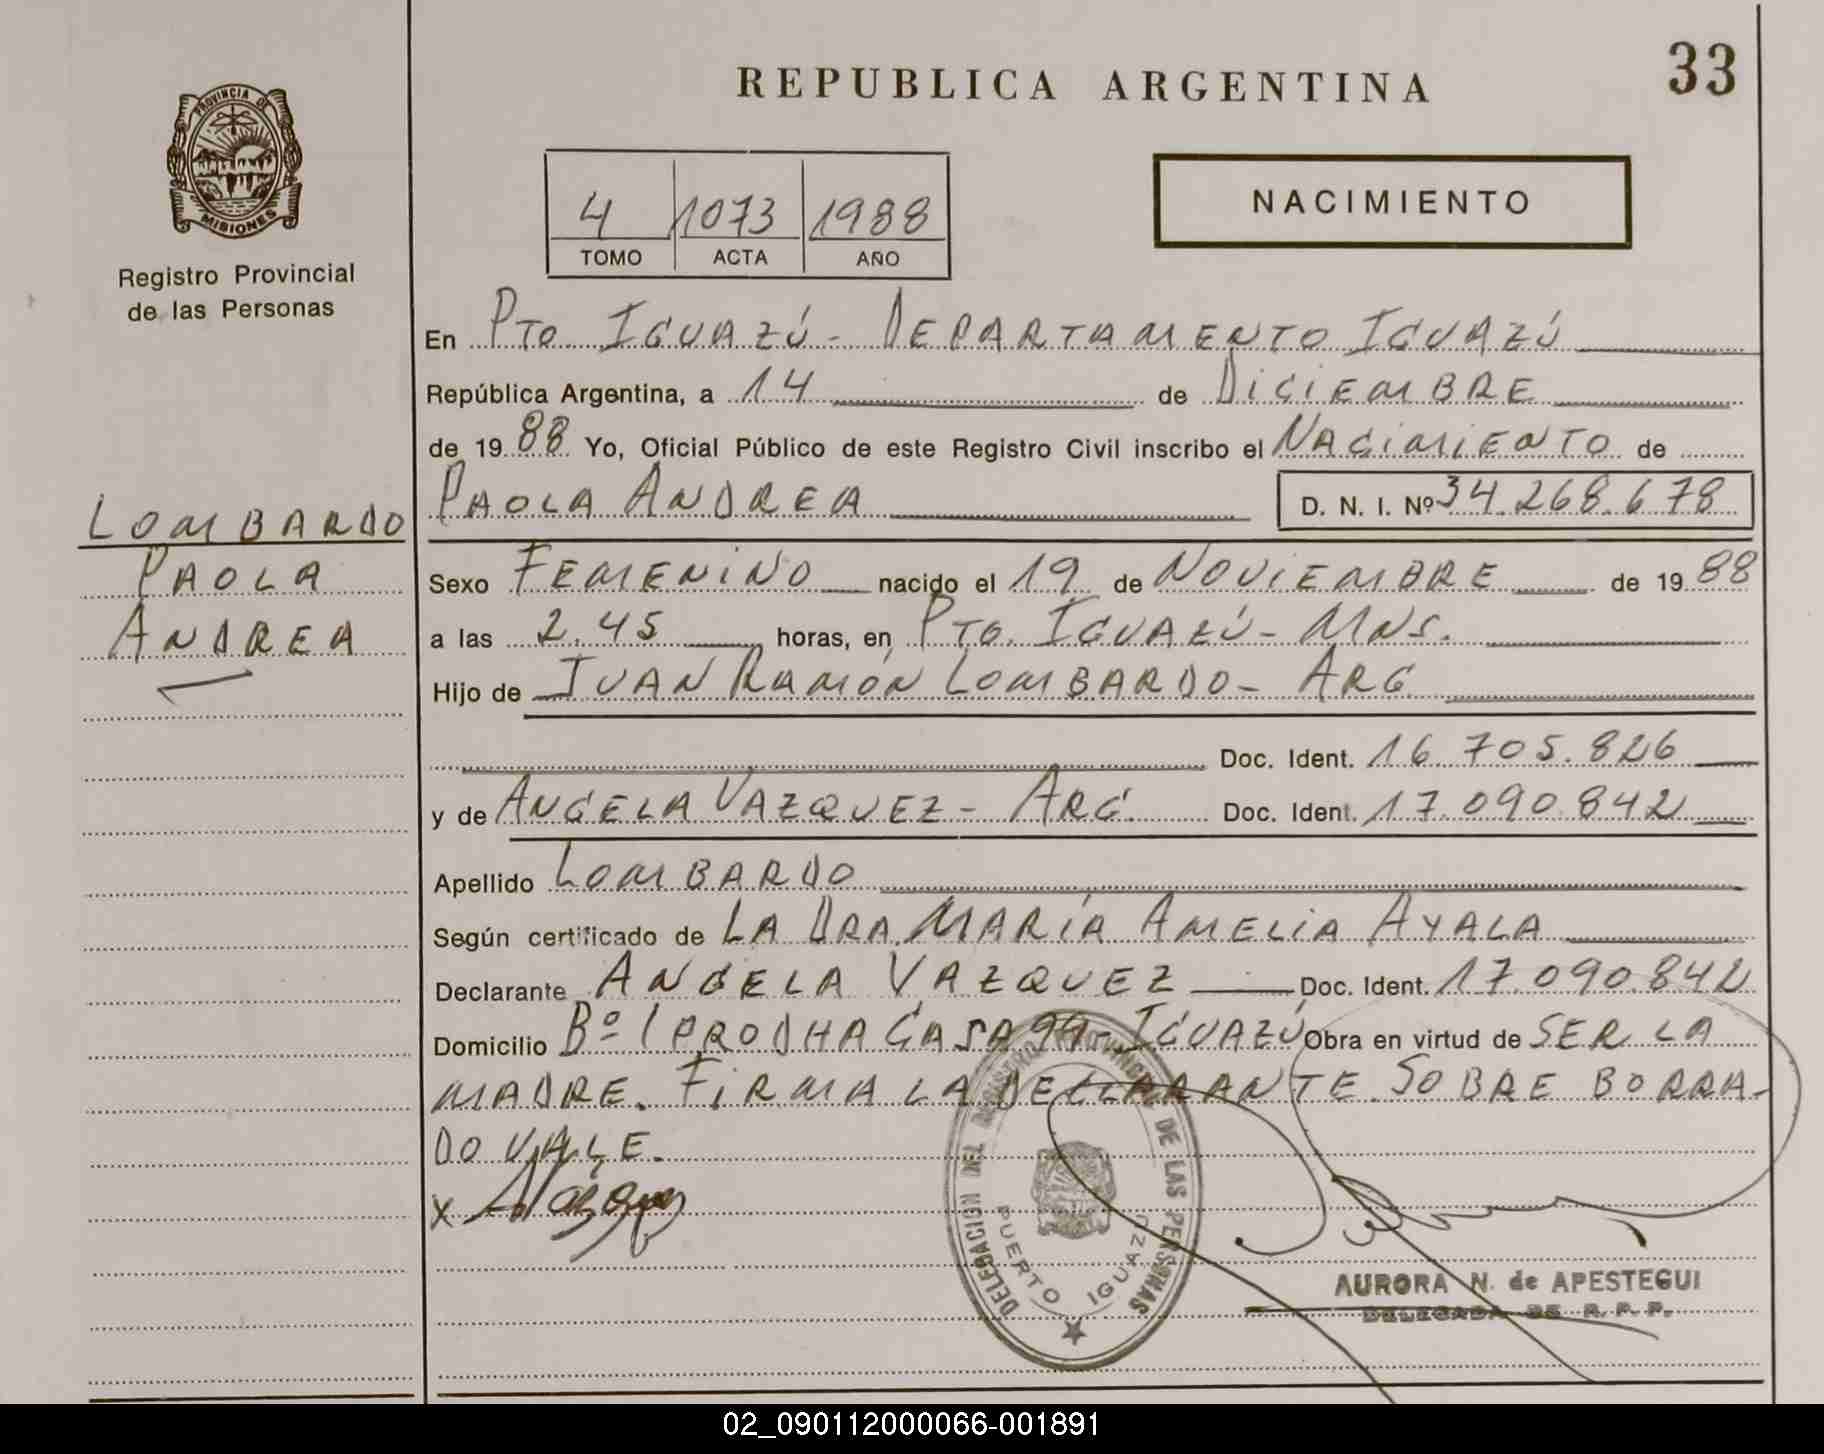 33
REPUBLICA ARGENTINA
PROVINCIA DE
MISIONES
Registro Provincial
de las Personas
4 1073 1988
TOMO ACTA AÑO
NACIMIENTO
En PTO. IGUAZÚ - DEPARTAMENTO IGUAZÚ
República Argentina, a 14 de DICIEMBRE
de 1988 Yo, Oficial Público de este Registro Civil inscribo el NACIMIENTO de
PAOLA ANDREA D. N. I. Nº 34.268.678
LOMBARDO
PAOLA
ANDREA
Sexo FEMENINO nacido el 19 de NOVIEMBRE de 1988
a las 2.45 horas, en PTO. IGUAZÚ - MNS.
Hijo de JUAN RAMÓN LOMBARDO - ARG
Doc. Ident. 16.705.826
y de ANGELA VAZQUEZ - ARG. Doc. Ident. 17.090.842
Apellido LOMBARDO
Según certificado de LA DRA. MARÍA AMELIA AYALA
Declarante ANGELA VAZQUEZ Doc. Ident. 17.090.842
Domicilio Bº IPRODHA CASA - IGUAZÚ Obra en virtud de SER LA
MADRE. FIRMA LA DECLARANTE. SOBRE BORRA-
DO VALE.
X Vazquez
DELEGACION DEL REGISTRO PROVINCIAL DE LAS PERSONAS
PUERTO IGUAZU
AURORA N. de APESTEGUI
DELEGADA DE R. P. P.
02_090112000066-001891